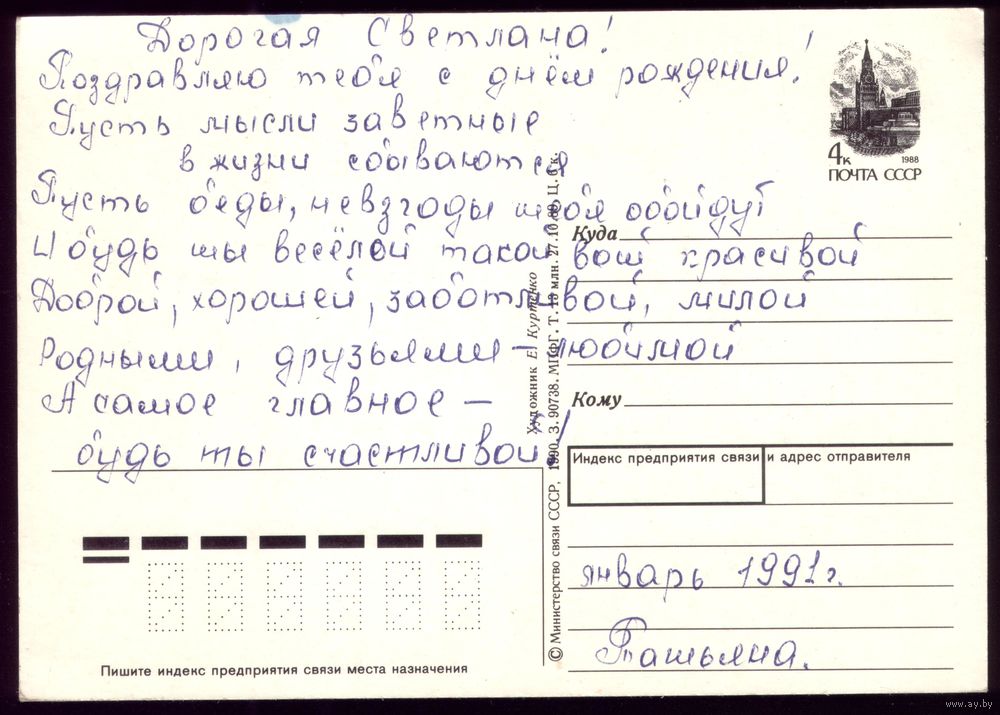 Дорогая Светлана!
Поздравляю тебя с днём рождения!
Пусть мысли заветные
в жизни сбываются
Пусть беды, невзгоды тебя обойдут
И будь ты весёлой такой вот красивой
Доброй, хорошей, заботливой, милой
Родными, друзьями – любимой
А самое главное –
будь ты счастливой!
4к
1988
ПОЧТА СССР
Куда
Кому
Индекс предприятия связи и адрес отправителя
январь 1991г.
Татьяна.
Художник Е. Куртенко
© Министерство связи СССР, 1990. З. 90738. МПФГ. Т. 10 млн. 27.10.89. Ц. 6 к.
Пишите индекс предприятия связи места назначения
www.ay.by